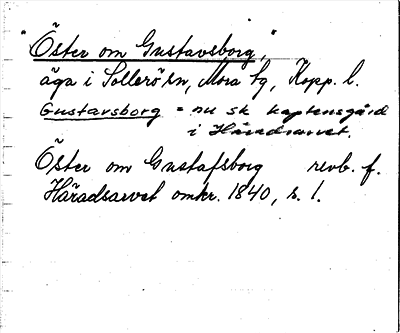 "Öster om Gustavsborg",
äga i Sollerö sn, Mora tg, Kopp. l.
Gustavsborg = nu sk kaptensgård
i Häradsarvet.
Öster om Gustafsborg revb. f.
Häradsarvet omkr. 1840, s. 1.